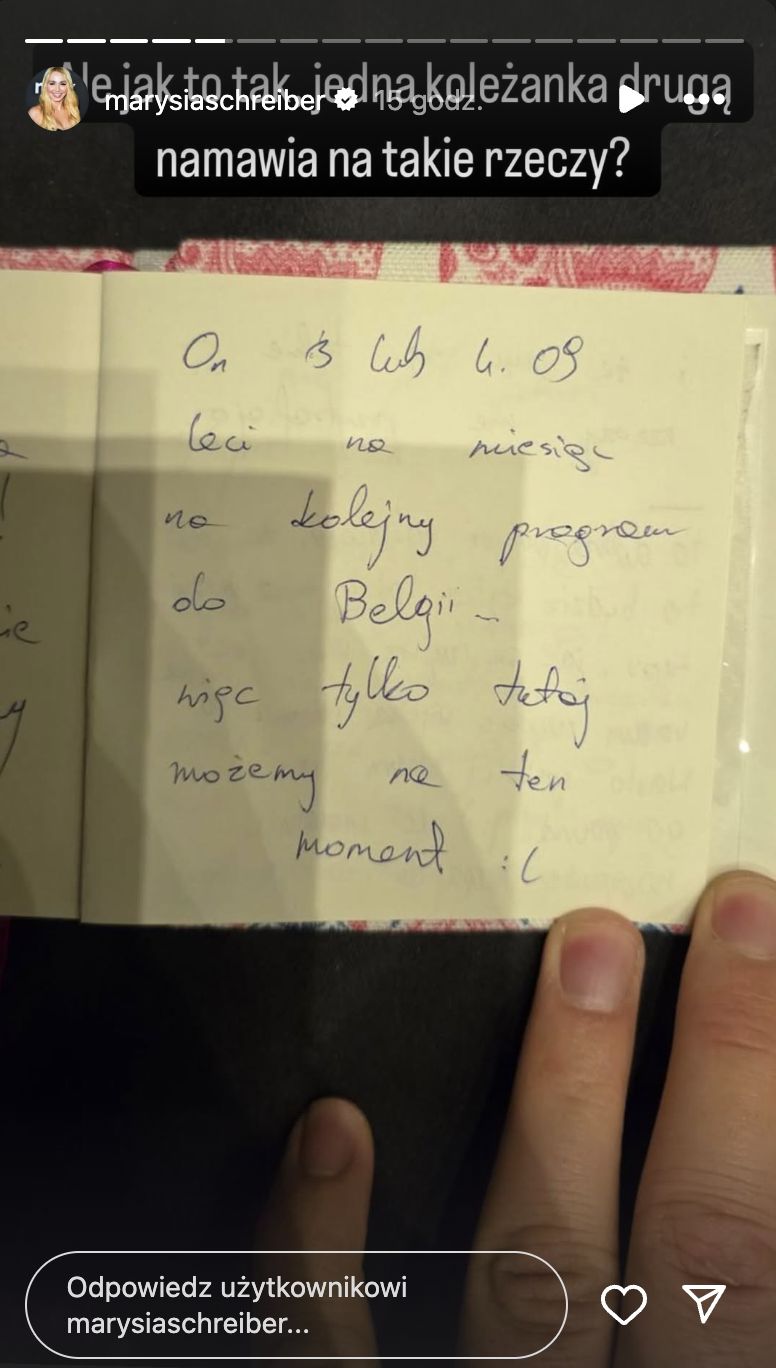 Ale jak to tak, jedna koleżanka drugą
marysiaschreiber 15 godz.
namawia na takie rzeczy?
On 3 lub 4. 09
leci na miesiąc
na kolejny program
do Belgii
więc tylko tutaj
możemy na ten
moment :(
Odpowiedz użytkownikowi
marysiaschreiber...